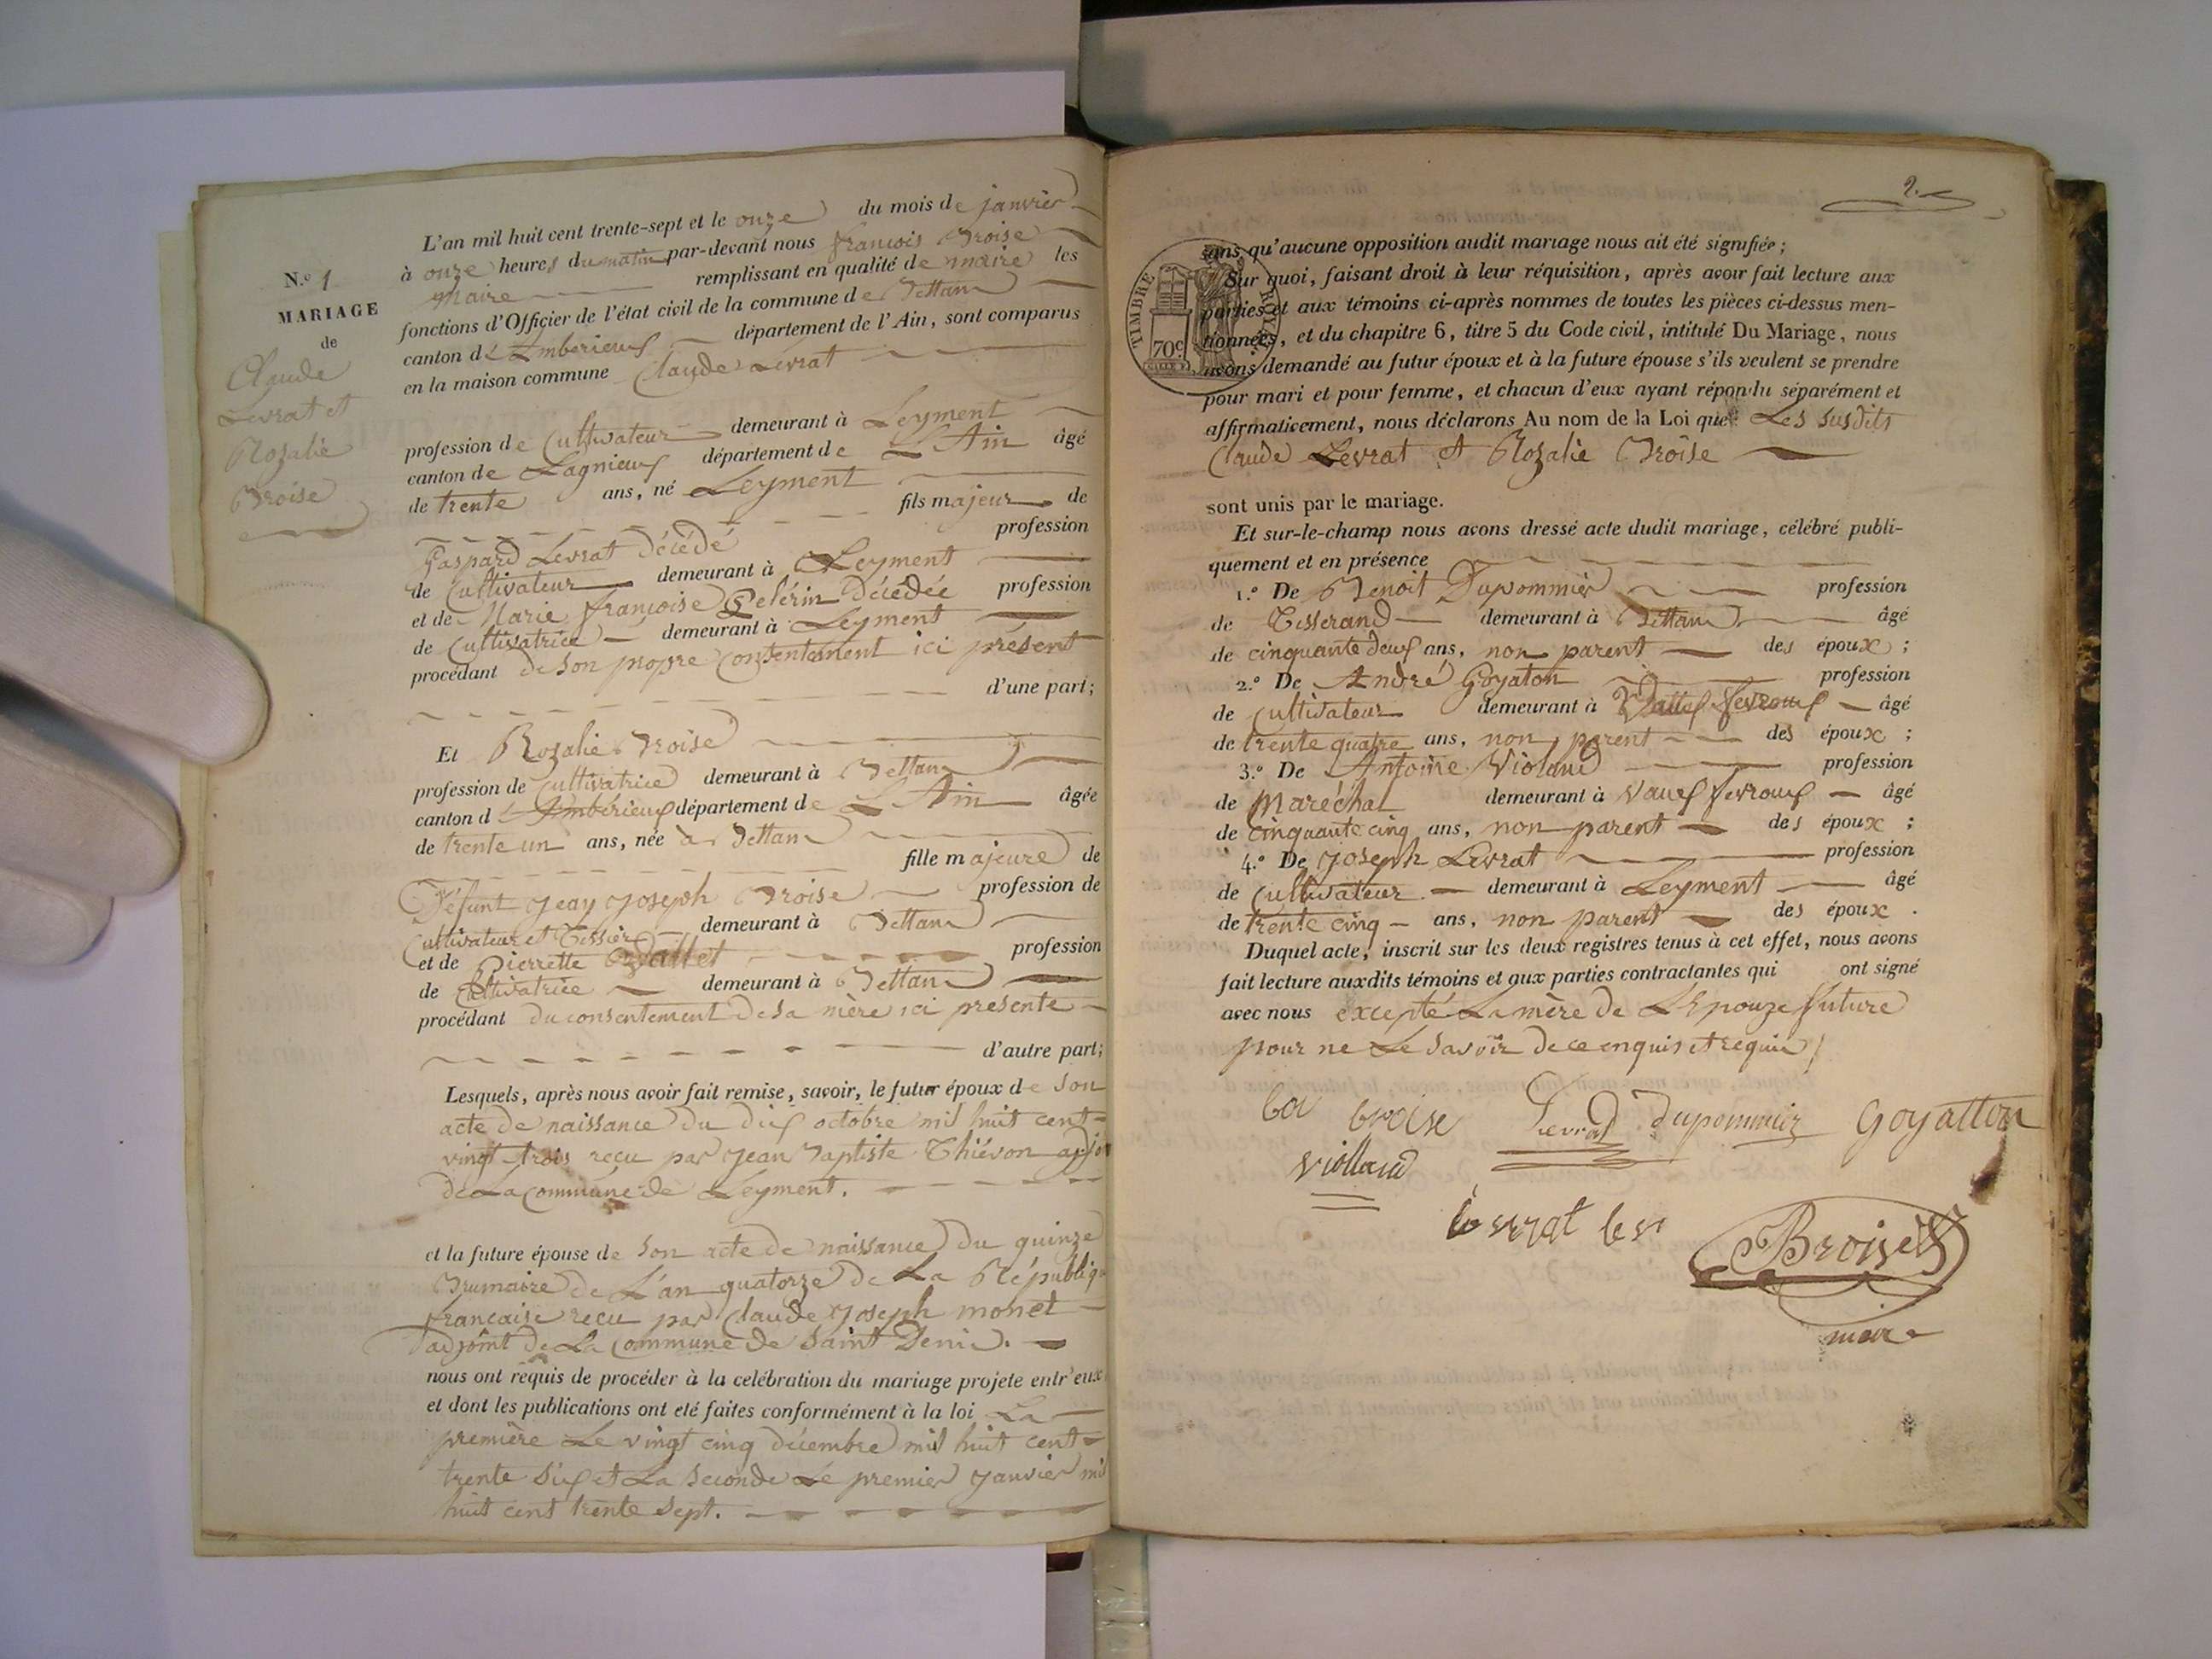 N.º 1
MARIAGE
de
Claude
Levrat et
Rozalie
Broise
L'an mil huit cent trente-sept et le onze du mois de janvier
à onze heures du matin par-devant nous françois Broise
Maire remplissant en qualité de maire les
fonctions d'Officier de l'état civil de la commune de Bettan
canton d'Ambérieux département de l'Ain, sont comparus
en la maison commune Claude Levrat
profession de Cultivateur demeurant à Leyment
canton de Lagnieux département de L'Ain âgé
de trente ans, né Leyment
fils majeur de
Gaspard Levrat décédé profession
de Cultivateur demeurant à Leyment
et de Marie françoise Pelérin Décédée profession
de Cultivatrice demeurant à Leyment
procédant de son propre Consentement ici présent
d'une part;
Et Rozalie Broise
profession de Cultivatrice demeurant à Bettan
canton d'Ambérieux département de L'Ain âgée
de trente un ans, née à Bettan
fille majeure de
Défunt Jean Joseph Broise profession de
Cultivateur et Tessier demeurant à Bettan
et de Pierrette Vallet profession
de Cultivatrice demeurant à Bettan
procédant du consentement de sa mère ici présente
d'autre part;
Lesquels, après nous avoir fait remise, savoir, le futur époux de son
acte de naissance du dix octobre mil huit cent
vingt trois reçu par Jean Baptiste Thiévon
de La Commune de Leyment.
et la future épouse de son acte de naissance du quinze
Brumaire de L'an quatorze de La République
française reçu par Claude Joseph monet
adjoint de La Commune de Saint Denis.
nous ont requis de procéder à la celébration du mariage projete entr'eux
et dont les publications ont eté faites conformément à la loi La
première Le vingt cinq décembre mil huit cent
trente six et La seconde Le premier Janvier mil
huit cent trente sept.
2.
TIMBRE ROYAL
70c
sans qu'aucune opposition audit mariage nous ait été signifiée;
Sur quoi, faisant droit à leur réquisition, après avoir fait lecture aux
parties et aux témoins ci-après nommes de toutes les pièces ci-dessus men-
tionnées, et du chapitre 6, titre 5 du Code civil, intitulé Du Mariage, nous
avons demandé au futur époux et à la future épouse s'ils veulent se prendre
pour mari et pour femme, et chacun d'eux ayant répondu séparément et
affirmativement, nous déclarons Au nom de la Loi que Les susdits
Claude Levrat et Rozalie Broise
sont unis par le mariage.
Et sur-le-champ nous avons dressé acte dudit mariage, célébré publi-
quement et en présence
1.º De Benoit Dupommier profession
de Tisserand demeurant à Bettan âgé
de cinquante deux ans, non parent des époux;
2.º De André Goyaton profession
de Cultivateur demeurant à Vaux fevroux âgé
de trente quatre ans, non parent des époux;
3.º De Antoine Violand profession
de Maréchal demeurant à Vaux fevroux âgé
de cinquante cinq ans, non parent des époux;
4.º De Joseph Levrat profession
de Cultivateur demeurant à Leyment âgé
de trente cinq ans, non parent des époux.
Duquel acte, inscrit sur les deux registres tenus à cet effet, nous avons
fait lecture auxdits témoins et aux parties contractantes qui ont signé
avec nous excepté La mère de L'Epouze future
pour ne Le savoir de ce enquis et requis
broise Levrat dupommier goyatton
violland
Broise
maire